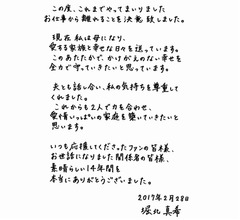 この度、これまでやってまいりました
お仕事から離れることを決意致しました。
現在 私は母になり、
愛する家族と幸せな日々を送っています。
このあたたかで、かけがえのない幸せを
全力で守っていきたいと思っています。
夫とも話し合い、私の気持ちを尊重して
くれました。
これからも2人で力を合わせ、
愛情いっぱいの家庭を築いていきたいと
思います。
いつも応援してくださったファンの皆様、
お世話になりました関係者の皆様、
素晴らしい14年間を
本当にありがとうございました。
2017年2月28日
堀北 真希